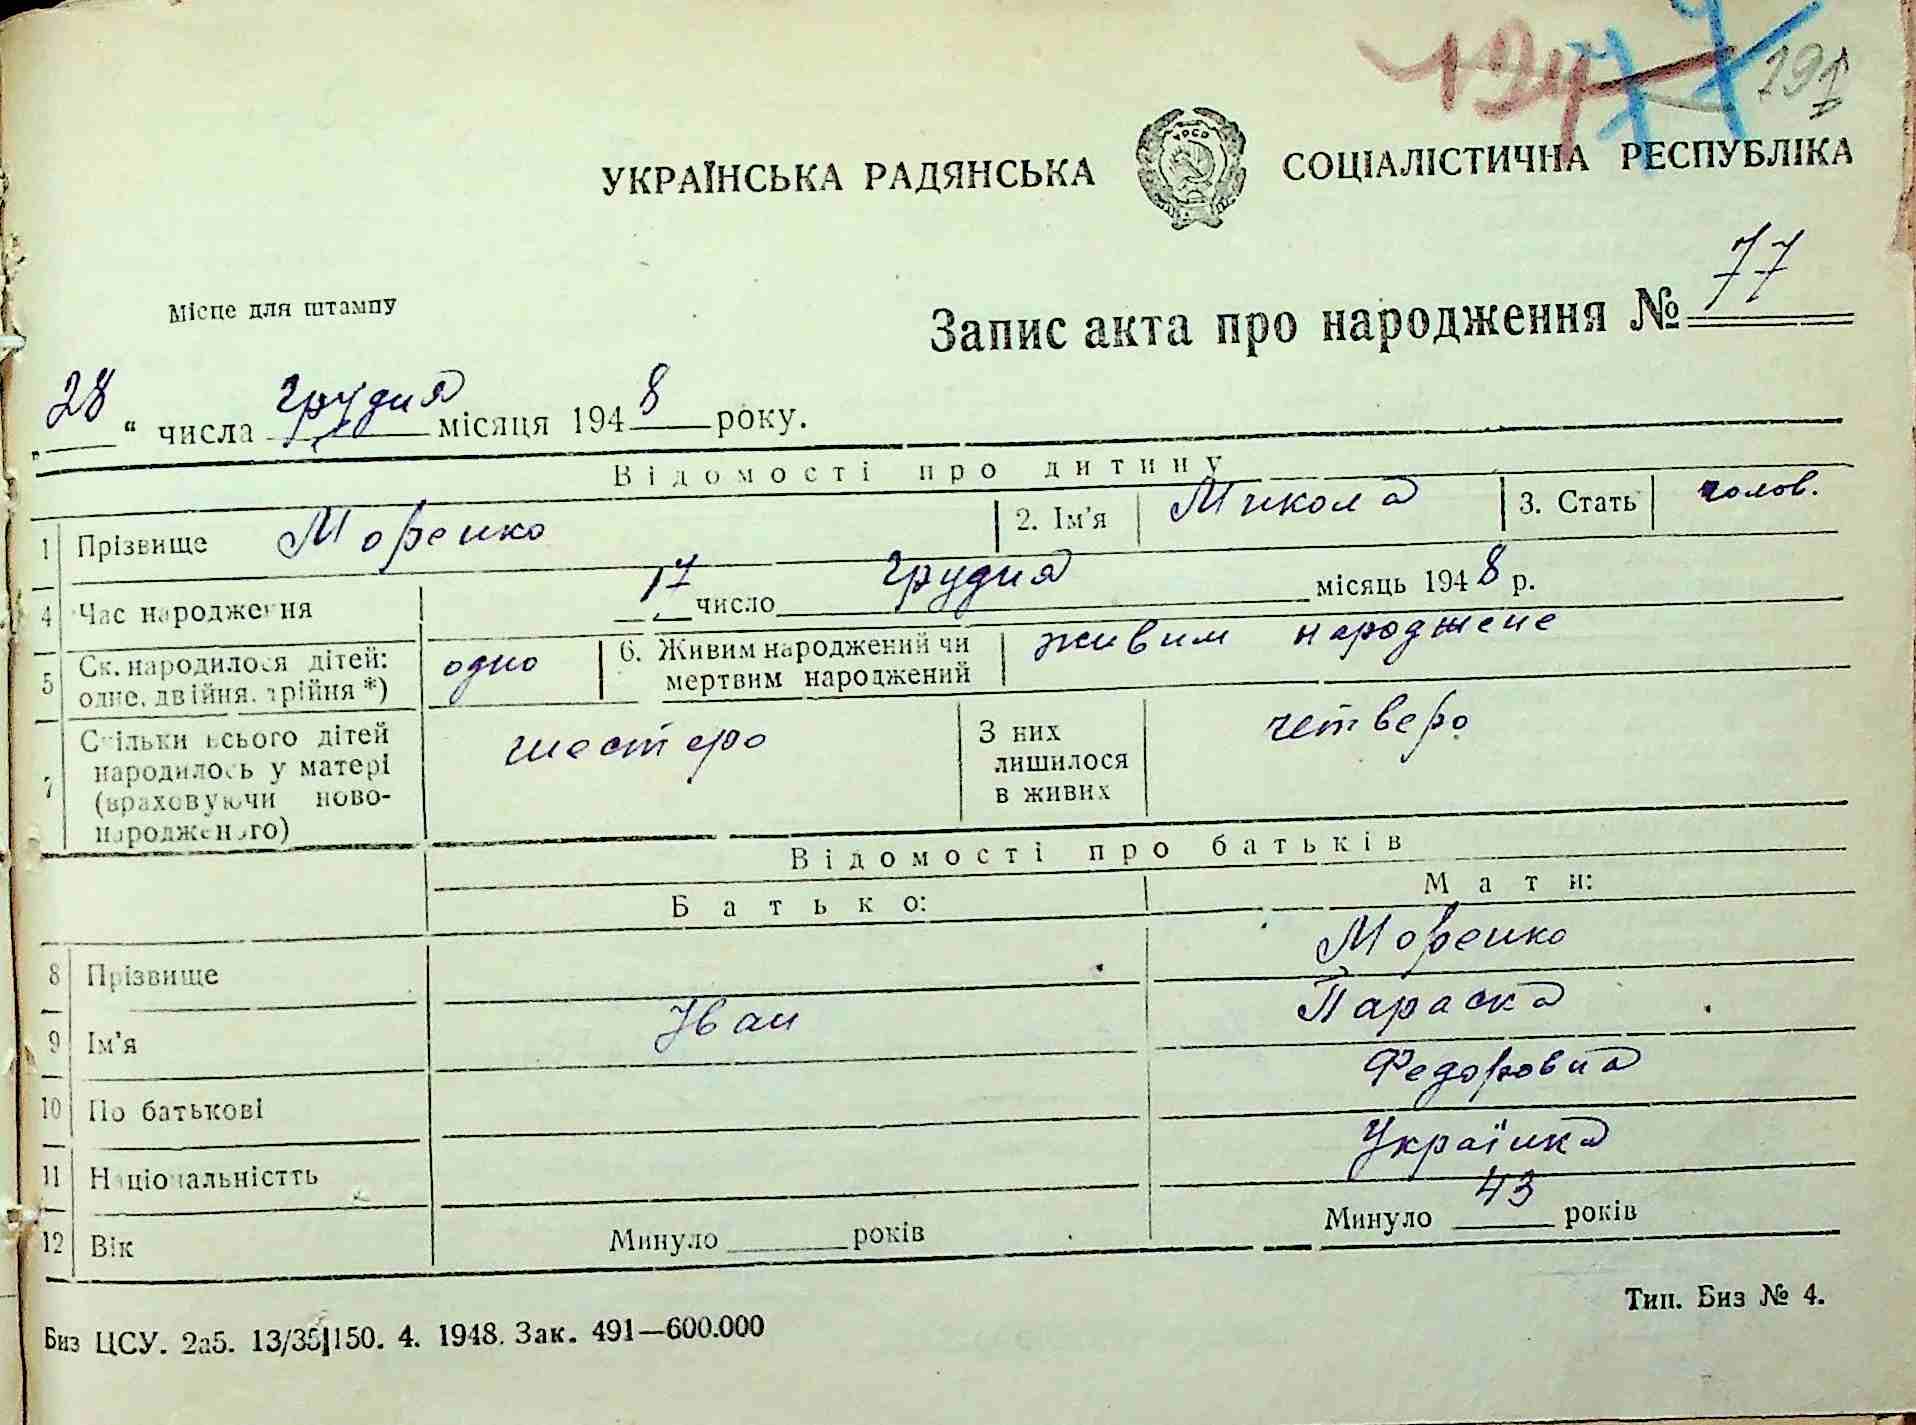 1947 77 191
УКРАЇНСЬКА РАДЯНСЬКА СОЦІАЛІСТИЧНА РЕСПУБЛІКА
УРСР
Місце для штампу
Запис акта про народження № 77
„28“ числа грудня місяця 1948 року.
Відомості про дитину
1 Прізвище Моренко 2. Ім'я Микола 3. Стать чолов.
4 Час народження 17 число грудня місяць 1948 р.
5 Ск. народилося дітей: одне, двійня, трійня *) одно 6. Живим народжений чи мертвим народжений живим народжене
7 Скільки всього дітей народилось у матері (враховуючи новонародженого) шестеро З них лишилося в живих четверо
Відомості про батьків
Батько: Мати:
8 Прізвище Моренко
9 Ім'я Іван Параска
10 По батькові Федоровна
11 Національністть Українка
12 Вік Минуло ____ років Минуло 43 років
Биз ЦСУ. 2а5. 13/35|150. 4. 1948. Зак. 491—600.000
Тип. Биз № 4.